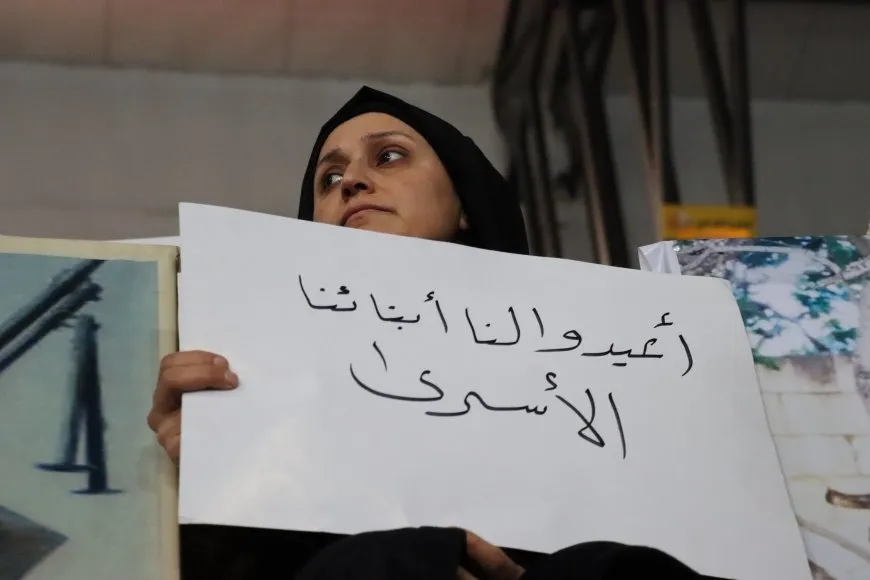 أعيدوا لنا أبنائنا
الأسرى